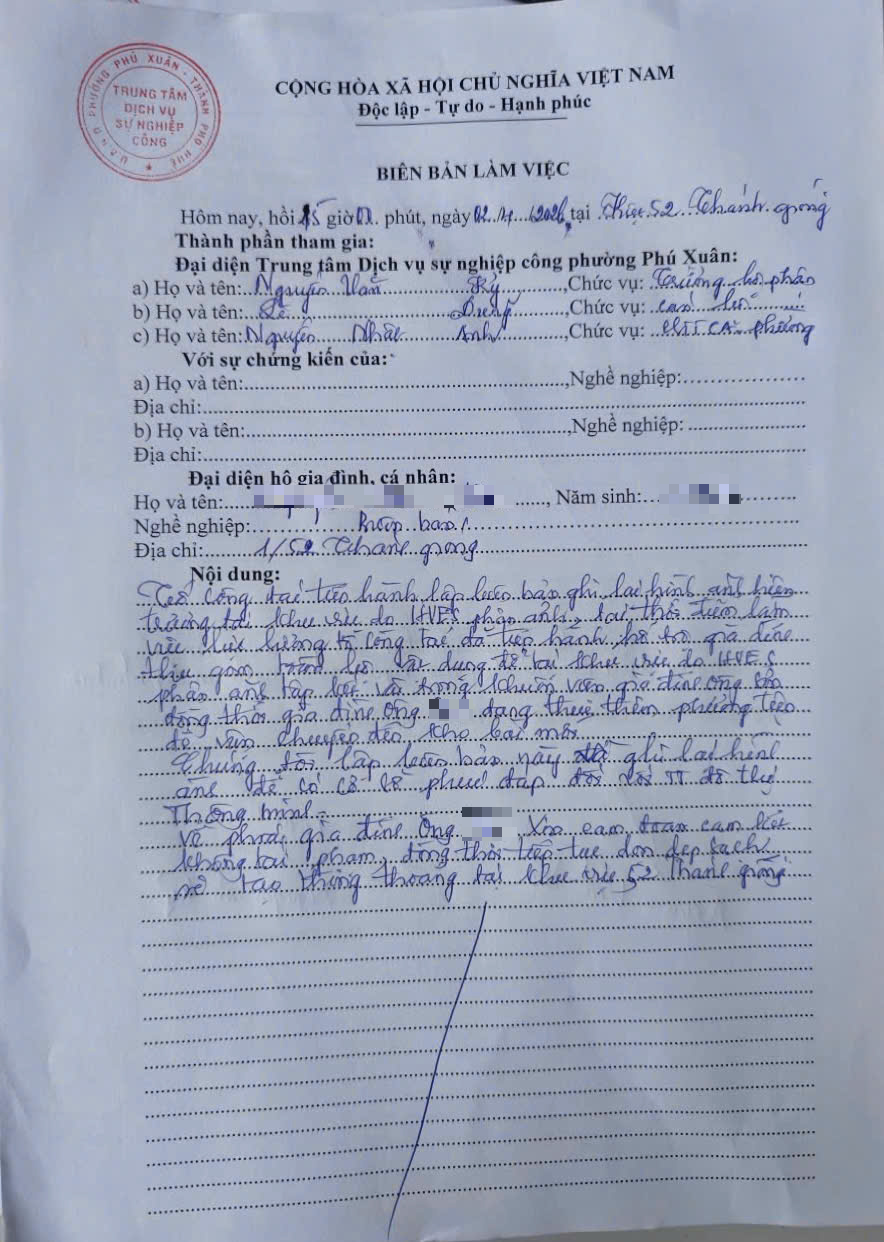 U.B.N.D PHƯỜNG PHÚ XUÂN - THÀNH PHỐ HUẾ
TRUNG TÂM
DỊCH VỤ
SỰ NGHIỆP
CÔNG
CỘNG HÒA XÃ HỘI CHỦ NGHĨA VIỆT NAM
Độc lập - Tự do - Hạnh phúc
BIÊN BẢN LÀM VIỆC
Hôm nay, hồi 15 giờ phút, ngày 02 2026 tại 52 Thánh gióng
Thành phần tham gia:
Đại diện Trung tâm Dịch vụ sự nghiệp công phường Phú Xuân:
a) Họ và tên: Nguyễn Văn Kỷ, Chức vụ: Trưởng bộ phận
b) Họ và tên: Lê, Chức vụ: cán bộ
c) Họ và tên: Nguyễn Nhật Anh, Chức vụ: phường
Với sự chứng kiến của:
a) Họ và tên:, Nghề nghiệp:
Địa chỉ:
b) Họ và tên:, Nghề nghiệp:
Địa chỉ:
Đại diện hộ gia đình, cá nhân:
Họ và tên:, Năm sinh:
Nghề nghiệp: buôn bán
Địa chỉ: 1/52 Thánh gióng
Nội dung:
Tổ công tác tiến hành lập biên bản ghi lại hình ảnh hiện
trường tại khu vực do HUES phản ánh, tại thời điểm làm
việc lực lượng tổ công tác đã tiến hành hỗ trợ gia đình
thu gom toàn bộ vật dụng để tại khu vực do HUES
phản ánh tập kết vào trong khuôn viên gia đình ông
đồng thời gia đình Ông đang thuê thêm phương tiện
để vận chuyển đến kho bãi mới.
Chúng tôi lập biên bản này để ghi lại hình
ảnh để có cơ sở phúc đáp đối với TT đô thị
Thông minh.
Về phía gia đình Ông Xin cam đoan cam kết
không tái phạm, đồng thời tiếp tục dọn dẹp sạch
sẽ tạo thông thoáng tại khu vực 52 Thánh gióng